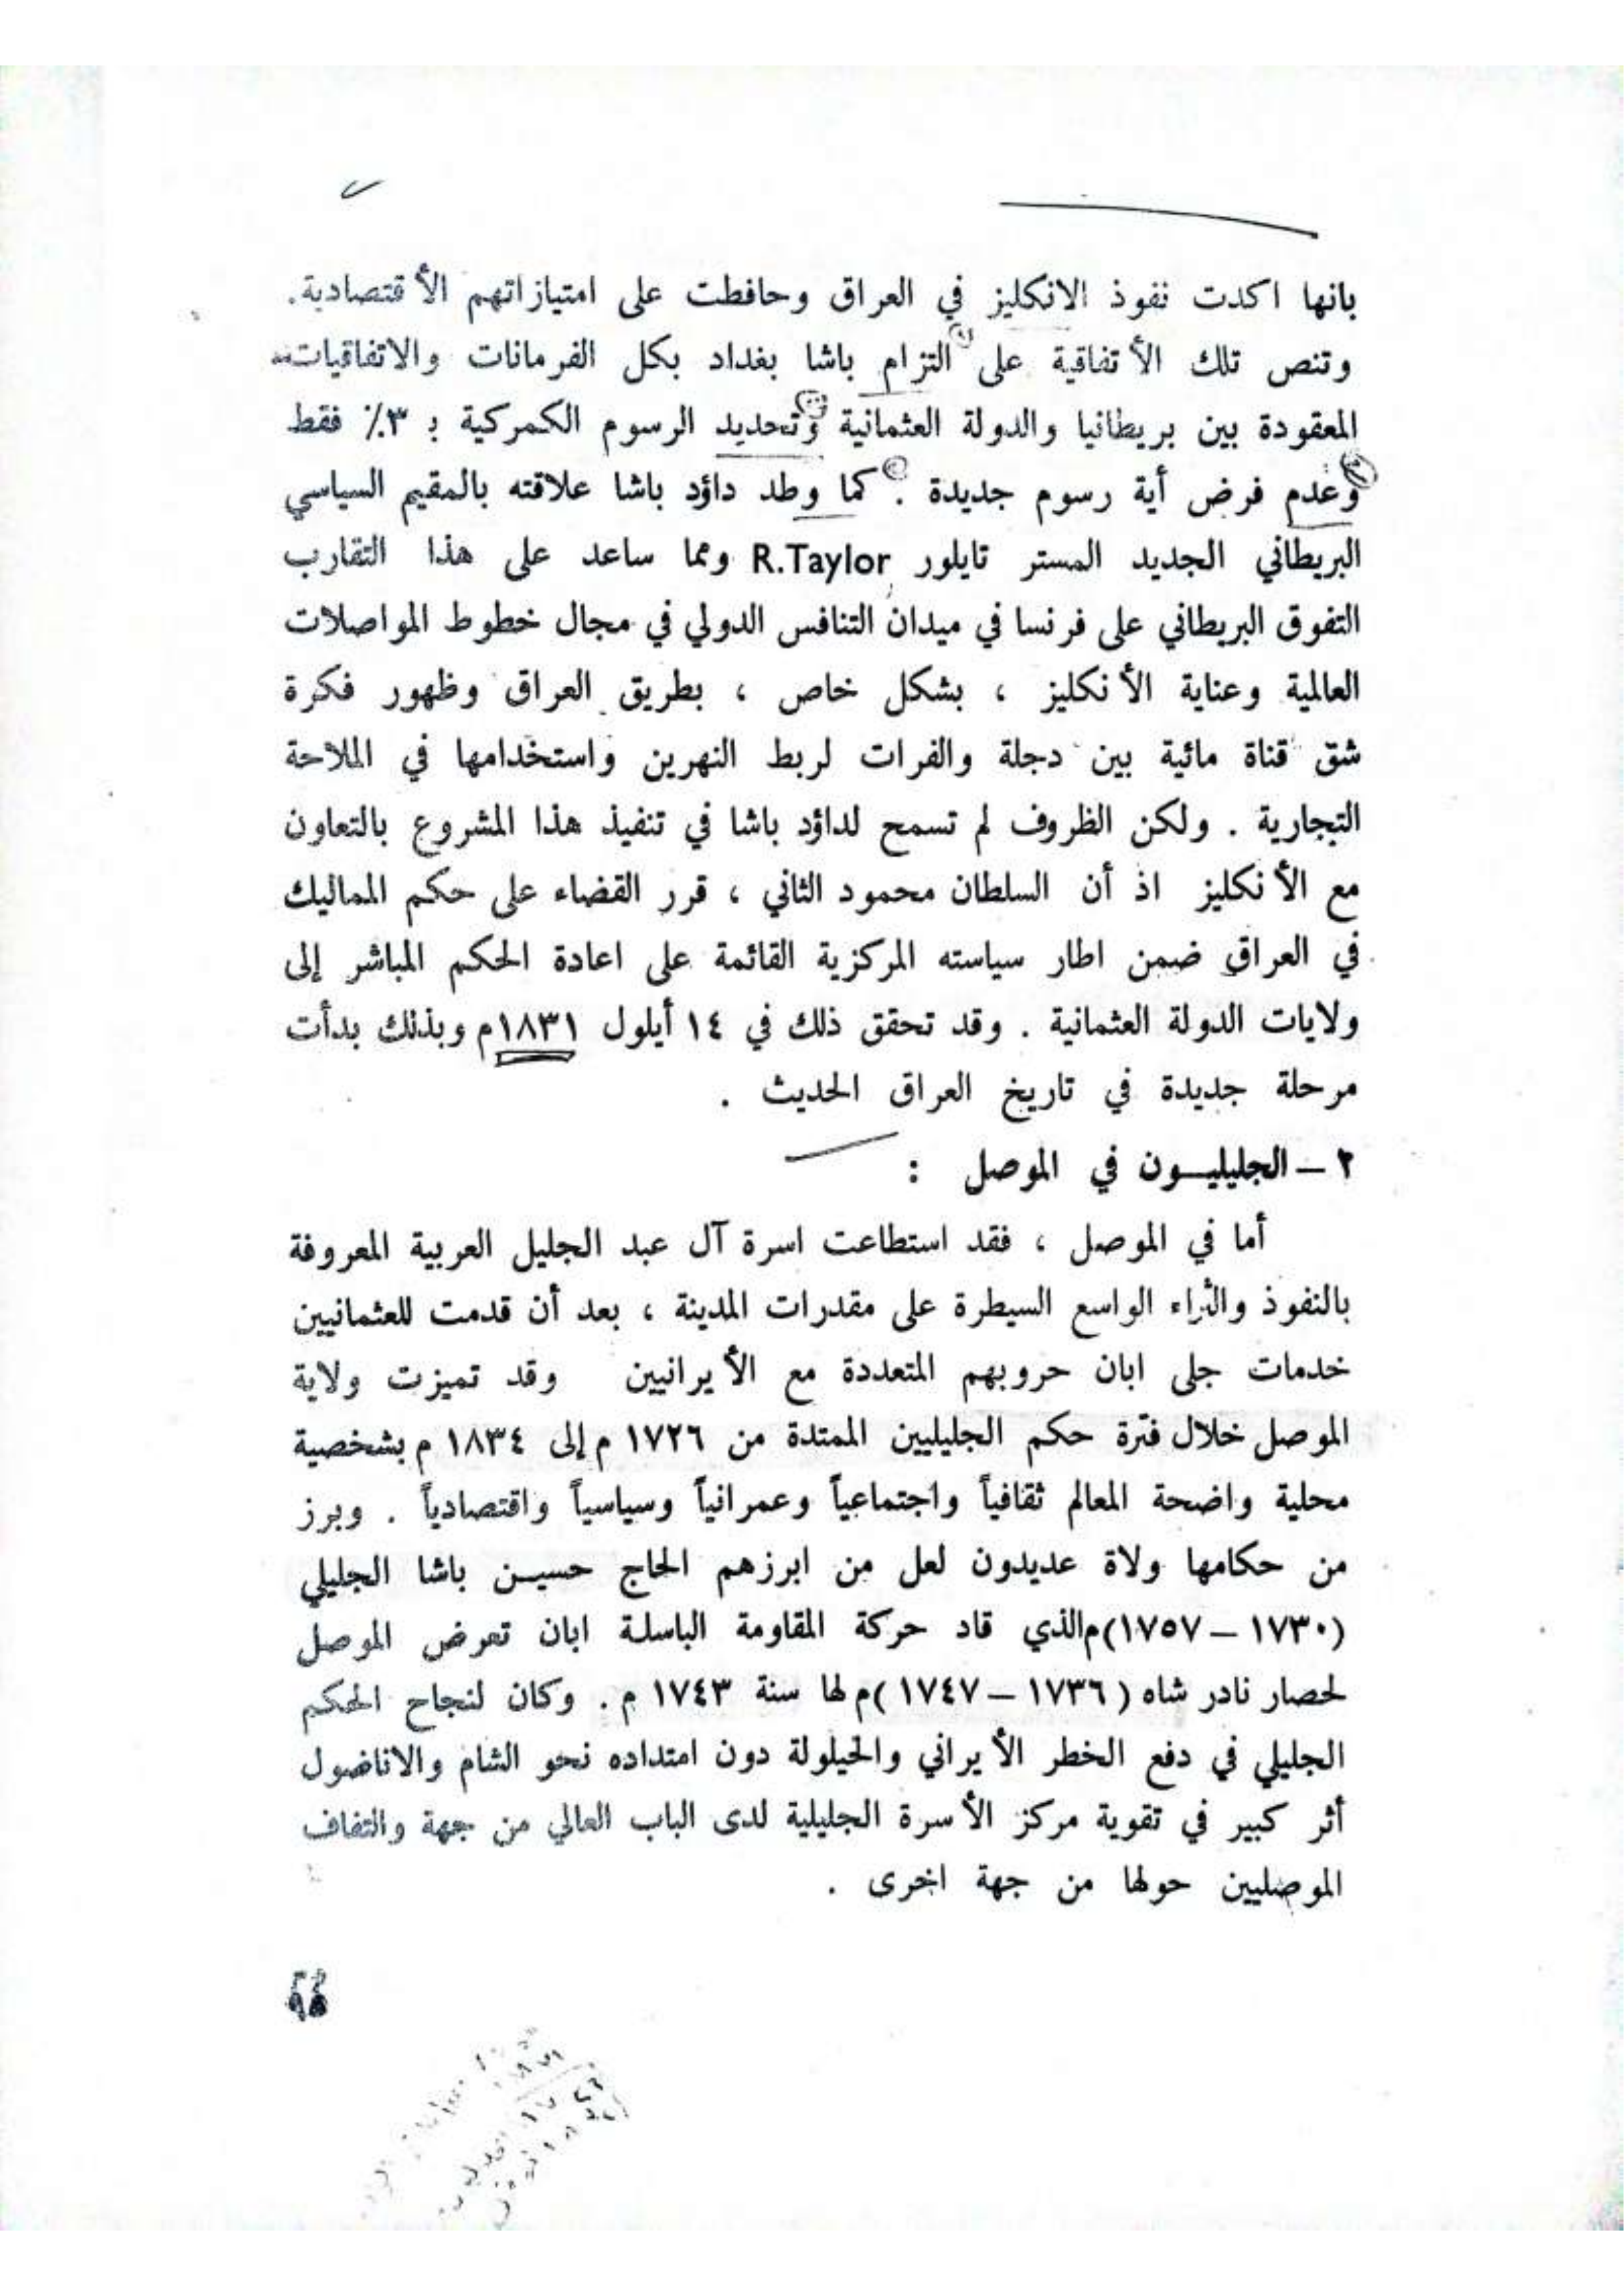 بانها اكدت نفوذ الانكليز في العراق وحافظت على امتيازاتهم الأقتصادية.
وتنص تلك الأتفاقية على التزام باشا بغداد بكل الفرمانات والاتفاقيات
المعقودة بين بريطانيا والدولة العثمانية وتحديد الرسوم الكمركية بـ ٣٪ فقط
وعدم فرض أية رسوم جديدة . كما وطد داؤد باشا علاقته بالمقيم السياسي
البريطاني الجديد المستر تايلور R.Taylor ومما ساعد على هذا التقارب
التفوق البريطاني على فرنسا في ميدان التنافس الدولي في مجال خطوط المواصلات
العالمية وعناية الأنكليز ، بشكل خاص ، بطريق العراق وظهور فكرة
شق قناة مائية بين دجلة والفرات لربط النهرين واستخدامها في الملاحة
التجارية . ولكن الظروف لم تسمح لداؤد باشا في تنفيذ هذا المشروع بالتعاون
مع الأنكليز اذ أن السلطان محمود الثاني ، قرر القضاء على حكم المماليك
في العراق ضمن اطار سياسته المركزية القائمة على اعادة الحكم المباشر إلى
ولايات الدولة العثمانية . وقد تحقق ذلك في ١٤ أيلول ١٨٣١م وبذلك بدأت
مرحلة جديدة في تاريخ العراق الحديث .
٢ – الجليليــون في الموصل :
أما في الموصل ، فقد استطاعت اسرة آل عبد الجليل العربية المعروفة
بالنفوذ والثراء الواسع السيطرة على مقدرات المدينة ، بعد أن قدمت للعثمانيين
خدمات جلى ابان حروبهم المتعددة مع الأيرانيين وقد تميزت ولاية
الموصل خلال فترة حكم الجليليين الممتدة من ١٧٢٦ م إلى ١٨٣٤ م بشخصية
محلية واضحة المعالم ثقافياً واجتماعياً وعمرانياً وسياسياً واقتصادياً . وبرز
من حكامها ولاة عديدون لعل من ابرزهم الحاج حسيــن باشا الجليلي
(١٧٣٠ – ١٧٥٧)م الذي قاد حركة المقاومة الباسلة ابان تعرض الموصل
لحصار نادر شاه (١٧٣٦ – ١٧٤٧)م لها سنة ١٧٤٣ م . وكان لنجاح الحكم
الجليلي في دفع الخطر الأيراني والحيلولة دون امتداده نحو الشام والاناضول
أثر كبير في تقوية مركز الأسرة الجليلية لدى الباب العالي من جهة والتفاف
الموصليين حولها من جهة اخرى .